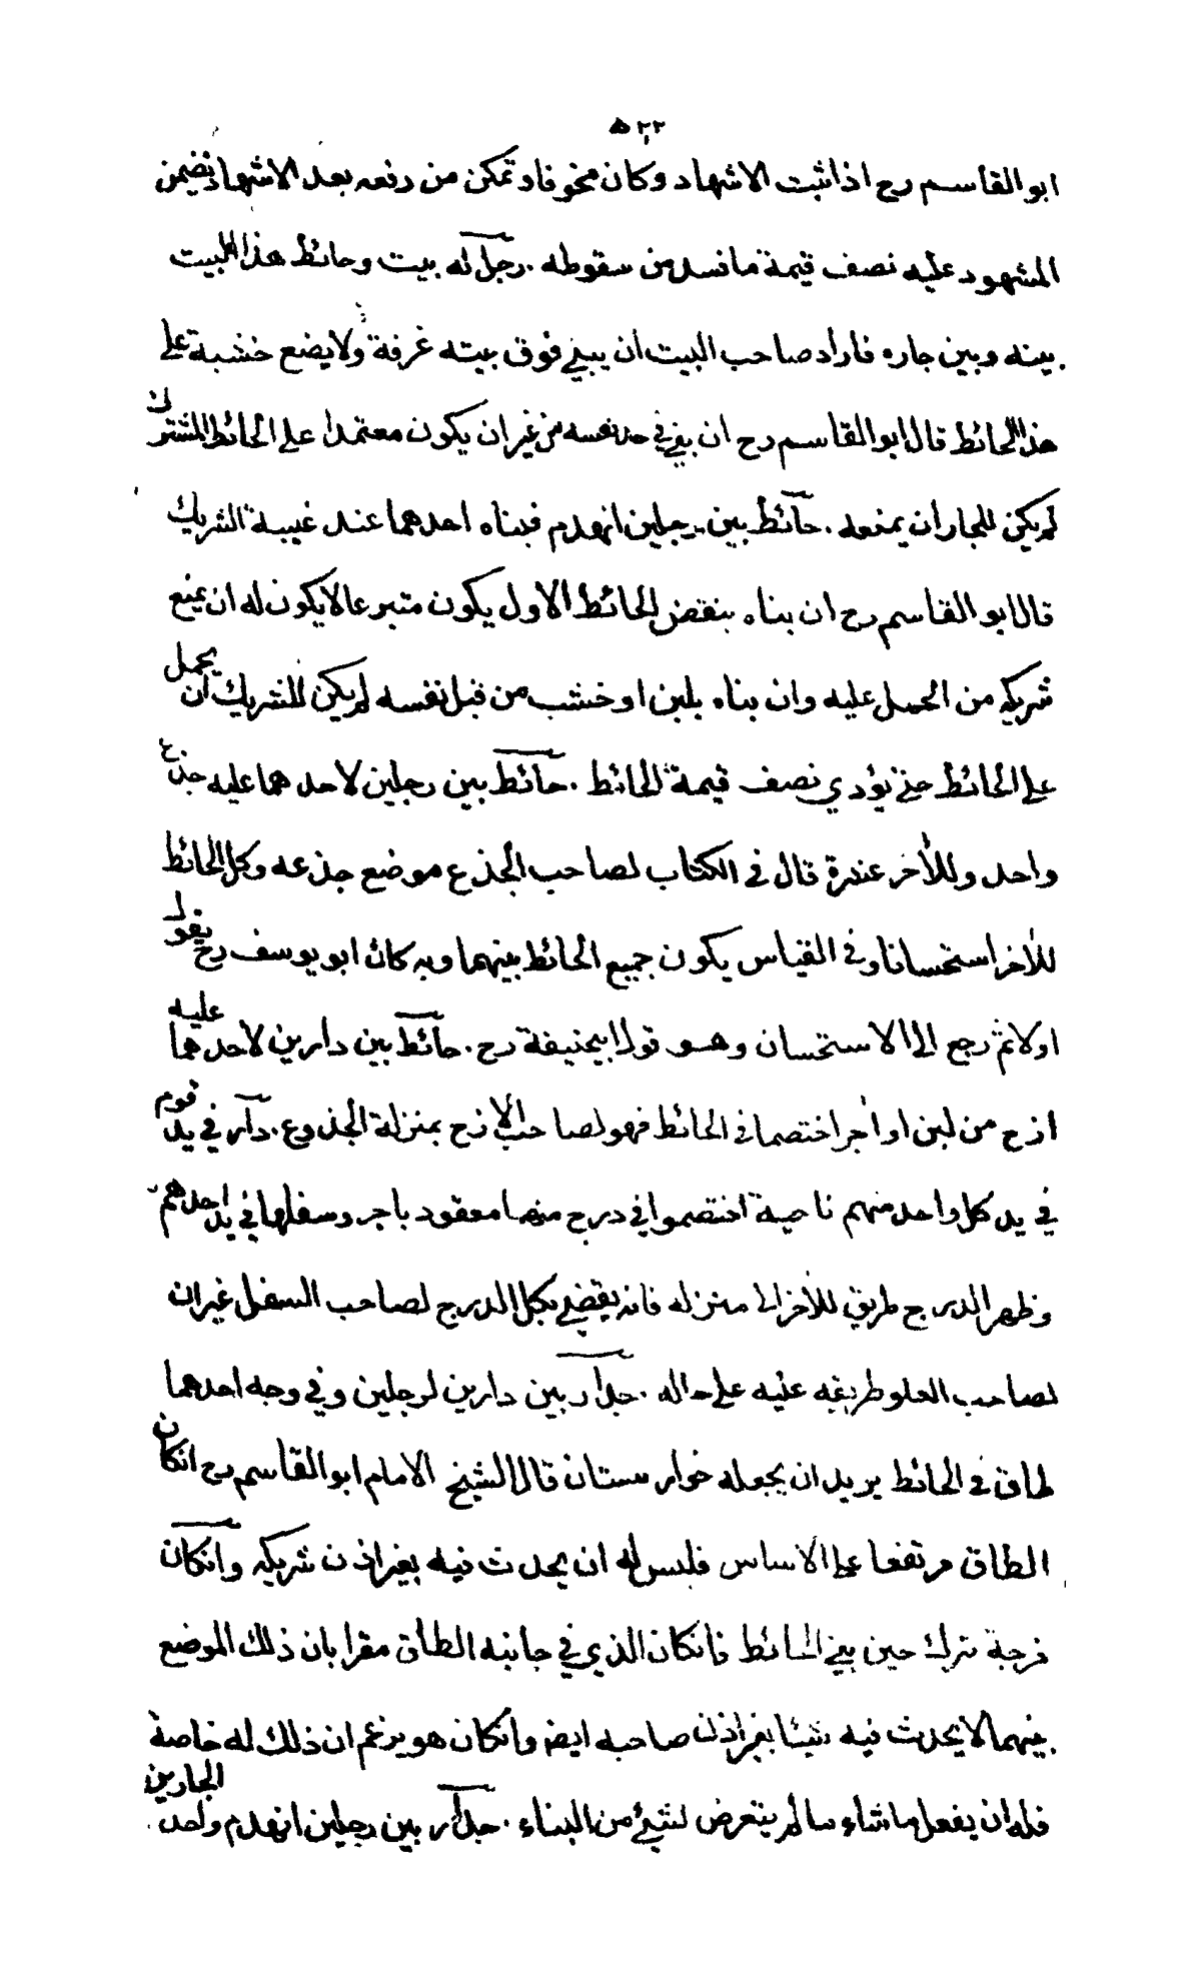 ٥٢٢
ابو القاسم رح اذا ثبت الاشهاد وكان مخوفا وتمكن من رفعه بعد الاشهاد يضمن
المشهود عليه نصف قيمة ما فسد من سقوطه . رجل له بيت وحائط هذا البيت
بينه وبين جاره فاراد صاحب البيت ان يبني فوق بيته غرفة ولا يضع خشبة على
هذا الحائط قال ابو القاسم رح ان بنى في حد نفسه من غير ان يكون معتمدا على الحائط المشترك
لم يكن للجار ان يمنعه . حائط بين رجلين انهدم فبناه احدهما عند غيبة الشريك
قال ابو القاسم رح ان بناه بنقض الحائط الاول يكون متبرعا لا يكون له ان يمنع
شريكه من الحمل عليه وان بناه بلبن او خشب من قبل نفسه لم يكن للشريك ان يحمل
على الحائط حتى يؤدي نصف قيمة الحائط . حائط بين رجلين لاحدهما عليه جذع
واحد وللأخر عشرة قال في الكتاب لصاحب الجذع موضع جذعه وكل الحائط
للأخر استحسانا وفي القياس يكون جميع الحائط بينهما وبه كان ابو يوسف رح يقول
اولا ثم رجع الى الاستحسان وهو قول ابيحنيفة رح . حائط بين دارين لاحدهما عليه
ازج من لبن او اجر اختصما في الحائط فهو لصاحب الازج بمنزلة الجذوع . دار في يد قوم
في يد كل واحد منهم ناحية اختصموا في درج منها معقود باجر وسفلها في يد احدهم
وظهر الدرج طريق للأخر الى منزله فانه يقضى بكل الدرج لصاحب السفل غير ان
لصاحب العلو طريقه عليه على حاله . جدار بين دارين لرجلين وفي وجه احدهما
طاق في الحائط يريد ان يجعله خوارستان قال الشيخ الامام ابو القاسم رح ان كان
الطاق مرتفعا على الاساس فليس له ان يحدث فيه بغير اذن شريكه وانكان
فرجة ترك حين بني الحائط فانكان الذي في جانبه الطاق مقرا بان ذلك الموضع
بينهما لا يحدث فيه شيئا بغير اذن صاحبه ايضا وانكان هو يزعم ان ذلك له خاصة
فله ان يفعل ما شاء ما لم يتعرض لشيئ من البناء . جدار بين رجلين انهدم واحد الجارين